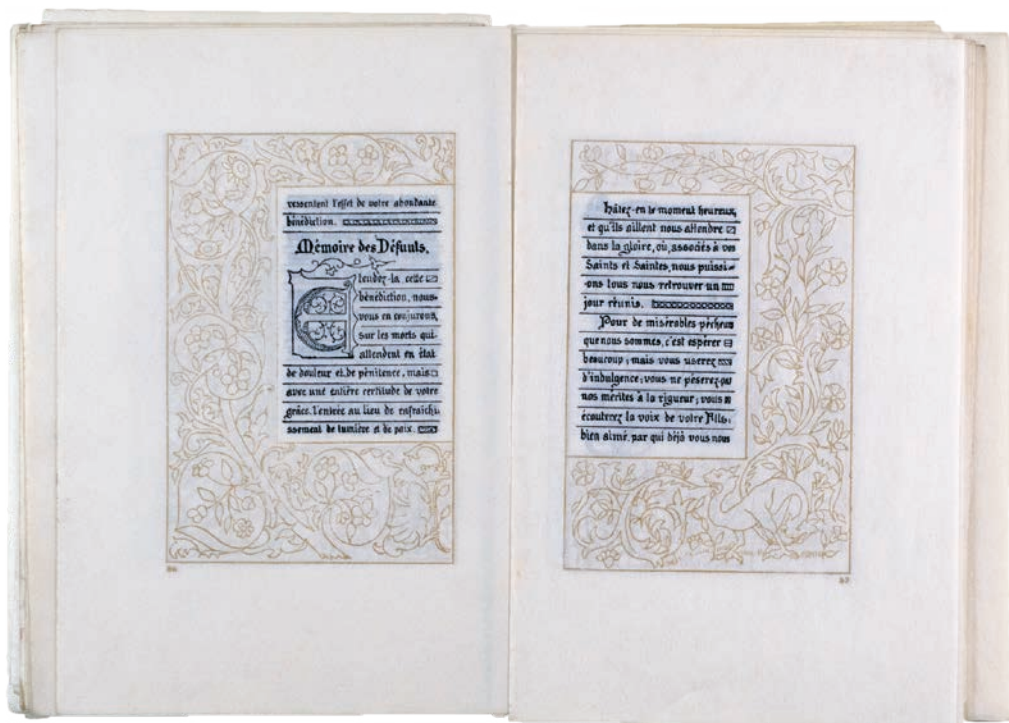 ressentent l'effet de votre abondante
bénédiction.
Mémoire des Défunts.
Etendez-la, cette
bénédiction, nous
vous en conjurons,
sur les morts qui
attendent en état
de douleur et de pénitence, mais
avec une entière certitude de votre
grâce, l'entrée au lieu de rafraîchi-
ssement de lumière et de paix.
Hâtez-en le moment heureux,
et qu'ils aillent nous attendre
dans la gloire, où, associés à vos
Saints et Saintes, nous puissi-
ons tous nous retrouver un
jour réunis.
Pour de misérables pécheurs
que nous sommes, c'est espérer
beaucoup; mais vous userez
d'indulgence; vous ne pèserez pas
nos mérites à la rigueur; vous
écouterez la voix de votre Fils
bien aimé, par qui déjà vous nous